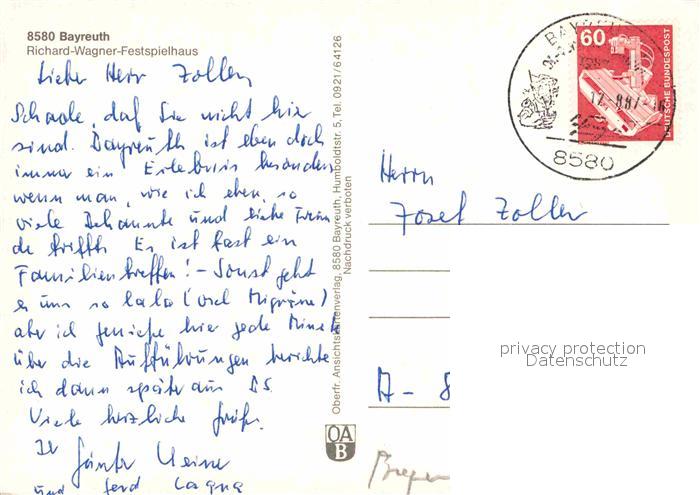 8580 Bayreuth
Richard-Wagner-Festspielhaus
Lieber Herr Zoller,
Schade, daß Sie nicht hier
sind. Bayreuth ist eben doch
immer ein Erlebnis besonders
wenn man, wie ich eben, so
viele Bekannte und liebe Freun
de trifft. Es ist fast ein
Familientreffen! - Sonst geht
es uns so lala (viel Migräne)
aber ich genieße hier jede Minute
über die Aufführungen berichte
ich dann später aus
Viele herzliche Grüße
Ihr
Günter
und Gerd
Oberfr. Ansichtskartenverlag, 8580 Bayreuth, Humboldtstr. 5, Tel. 0921/64126
Nachdruck verboten
OA
B
60
DEUTSCHE BUNDESPOST
8580
Herrn
Josef Zoller
A - 8
privacy protection
Datenschutz